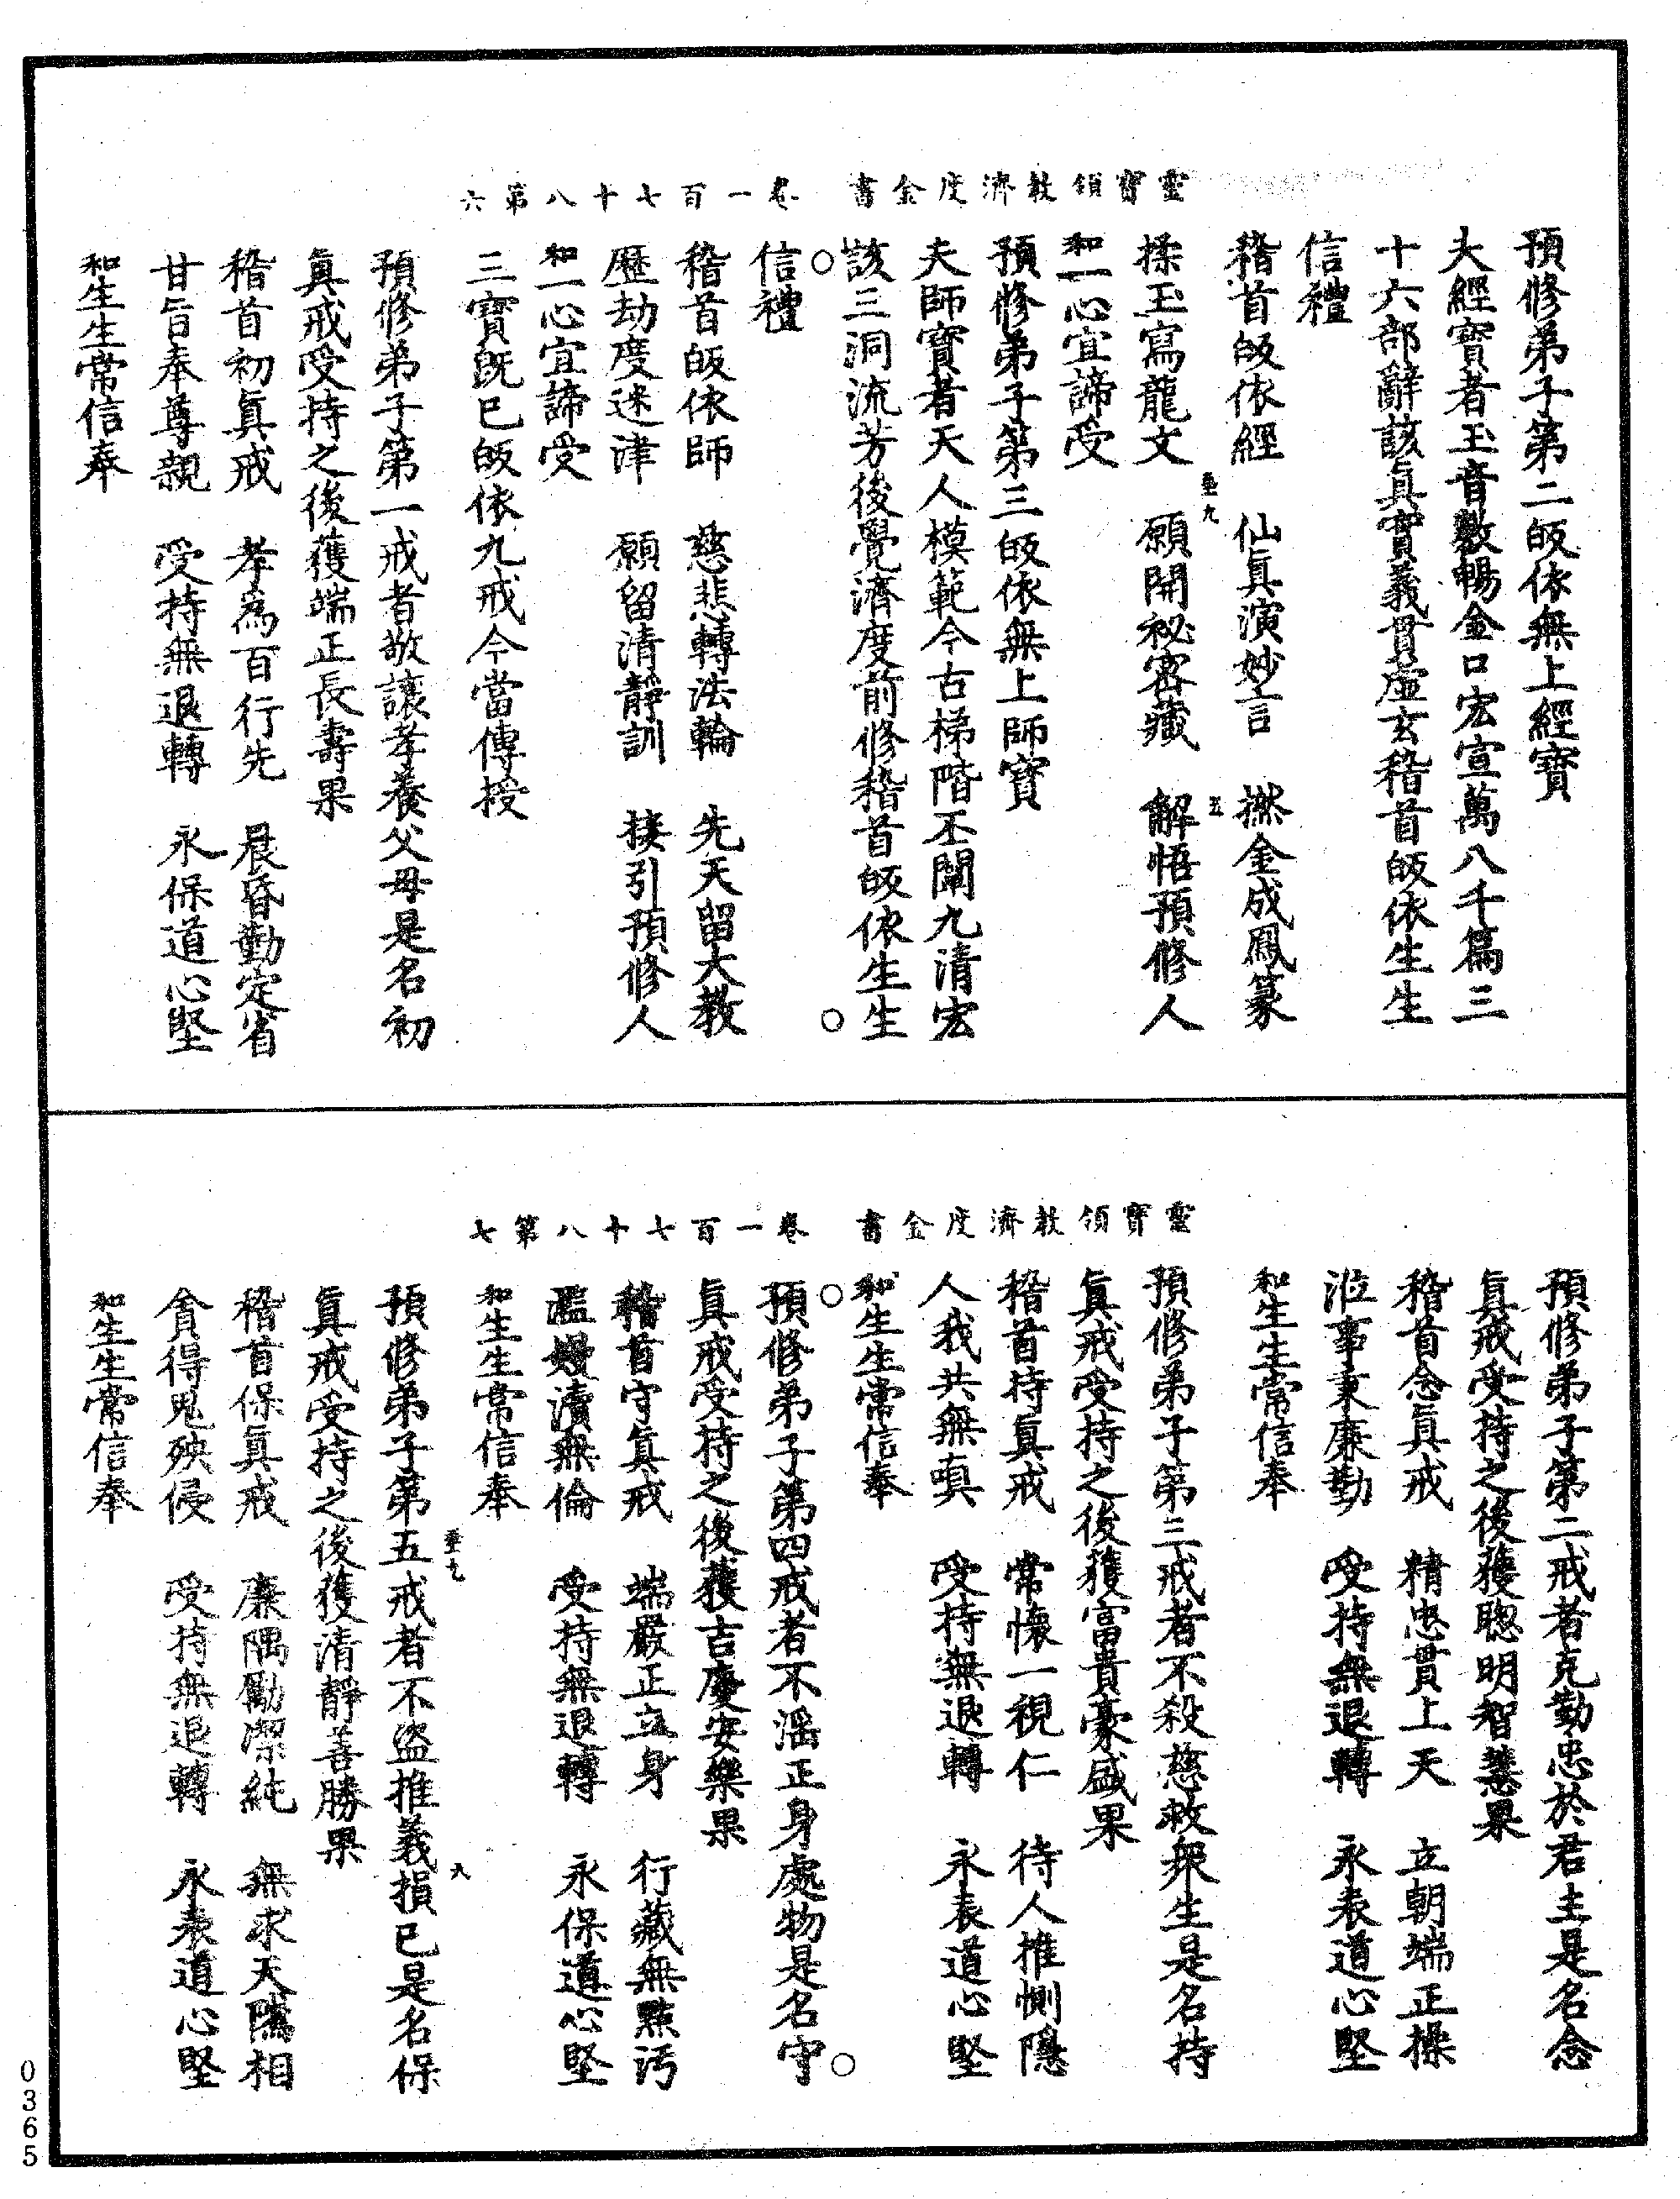 靈寶領教濟度金書　卷一百七十八第六
預修弟子第二皈依無上經寶
夫經寶者玉音敷暢金口宏宣萬八千篇三
十六部辭該眞實義貫虛玄稽首皈依生生
信禮
稽首皈依經　仙眞演妙言　撚金成鳳篆
揉玉寫龍文　願開祕密藏　解悟預修人
和一心宜諦受
預修弟子第三皈依無上師寶
夫師寶者天人模範今古梯階丕闡九清宏
該三洞流芳後覺濟度前修稽首皈依生生
信禮
稽首皈依師　慈悲轉法輪　先天留大教
歷劫度迷津　願留清靜訓　接引預修人
和一心宜諦受
三寶旣已皈依九戒今當傳授
預修弟子第一戒者敬讓孝養父母是名初
眞戒受持之後獲端正長壽果
稽首初眞戒　孝爲百行先　晨昏勤定省
甘旨奉尊親　受持無退轉　永保道心堅
和生生常信奉
靈寶領教濟度金書　卷一百七十八第七
預修弟子第二戒者克勤忠於君主是名念
眞戒受持之後獲聰明智慧果
稽首念眞戒　精忠貫上天　立朝端正操
涖事秉廉勤　受持無退轉　永表道心堅
和生生常信奉
預修弟子第三戒者不殺慈救衆生是名持
眞戒受持之後獲富貴豪盛果
稽首持眞戒　常懷一視仁　待人推惻隱
人我共無嗔　受持無退轉　永表道心堅
和生生常信奉
預修弟子第四戒者不滛正身處物是名守
眞戒受持之後獲吉慶安樂果
稽首守眞戒　端嚴正立身　行藏無點汚
濫嫚瀆無倫　受持無退轉　永保道心堅
和生生常信奉
預修弟子第五戒者不盜推義損已是名保
眞戒受持之後獲清靜善勝果
稽首保眞戒　廉隅勵潔純　無求天隲相
貪得鬼殃侵　受持無退轉　永表道心堅
和生生常信奉
0365